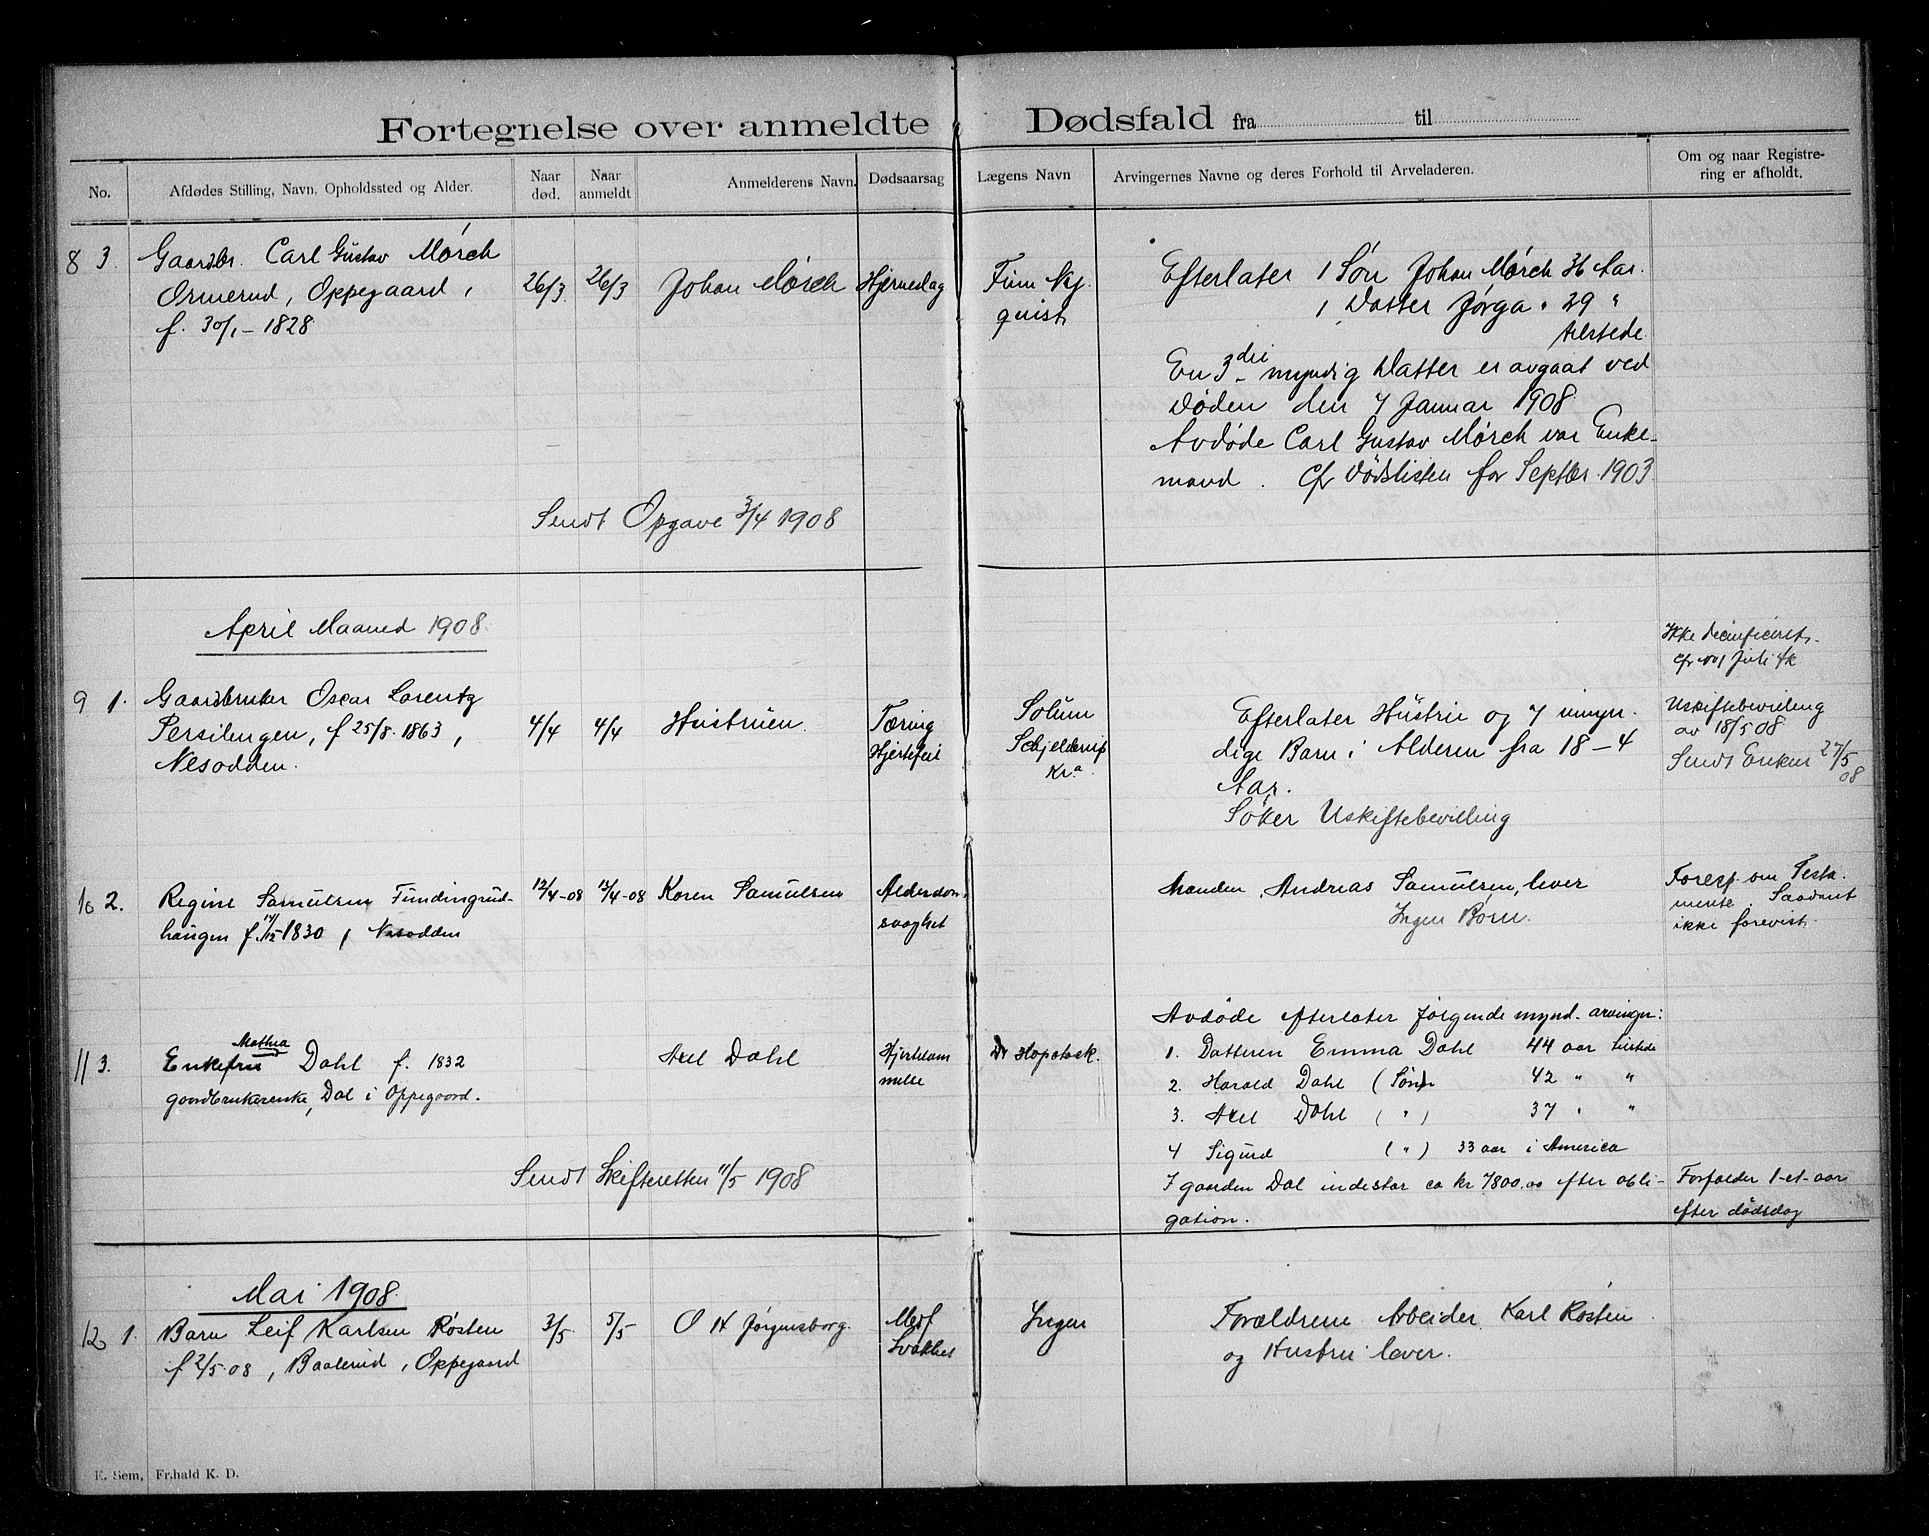 Fortegnelse over anmeldte Dødsfald fra til
No.
Afdødes Stilling, Navn, Opholdssted og Alder.
Naar død.
Naar anmeldt
Anmelderens Navn.
Dødsaarsag
Lægens Navn
Arvingernes Navne og deres Forhold til Arveladeren.
Om og naar Registrering er afholdt.
8 3.
Gaardbr. Carl Gustav Mørch
Ormerud, Oppegaard,
f. 30/1 – 1828
26/3
26/3
Johan Mørch
Hjerneslag
Finn
quist
Efterlater 1 Søn Johan Mørch 36 Aar.
1 Datter Jørga " 29 "
tilstede
En 3die myndig Datter er avgaat ved
Døden den 7 Januar 1908
Avdøde Carl Gustav Mørch var Enke-
mand. Cfr Dødslisten for Septbr. 1903
Sendt Opgave 3/4 1908
April Maaned 1908.
9 1.
Gaardbruker Oscar Lorentz
Persilengen, f 25/8. 1863,
Nesodden.
4/4
4/4
Hustruen.
Tæring
Hjertefeil
Solum
Schjelderup
Kr.a
Efterlater Hustru og 7 umyn-
dige Barn i Alderen fra 18 – 4
Aar.
Søker Uskiftebevilling
Ikke
cfr
Uskiftebevilling
av 18/5 08
Sendt Enken 27/5
08
10 2.
Regine Samuelsen Fundingrud-
haugen f. 17/12 1830, Nesodden
12/4-08
13/4-08
Karen Samuelsen
Alderdom-
svaghet
Manden, Andreas Samuelsen, lever
Ingen Børn.
Foresp. om Testa-
mente. Saadant
ikke forevist.
11 3.
Mathea
Enkefru Dahl f. 1832
gaardbrukerenke, Dal i Oppegaard.
Axel Dahl
Hjertelam
melse
Dr Hopstock.
Avdøde efterlater følgende mynd. arvinger:
1. Datteren Emma Dahl 44 aar tilstede
2. Harald Dahl (Søn) 42 " "
3. Axel Dahl ( " ) 37 " "
4 Sigurd ( " ) 33 aar i America
I gaarden Dal indestar ca kr 7800.00 efter obli-
gation.
Forfalder 1-et-aar
efter dødsdag
Sendt Skifteretten 11/5 1908
Mai 1908.
12 1.
Barn Leif Karlsen Røsten
f 2/5-08, Baalerud, Oppegaard
3/5
5/5
O H Jørgensborg.
Medf
Svakhet
Ingen
Forældrene Arbeider Karl Røsten
og Hustru lever.
E. Sem, Fr.hald K. D.